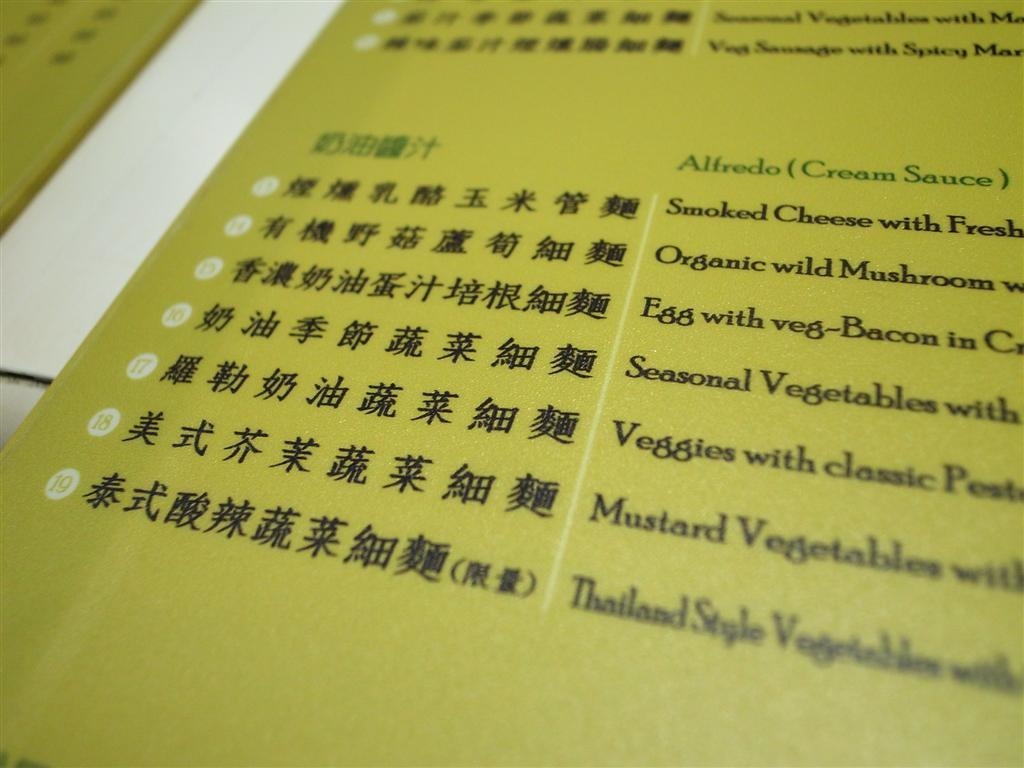 茄汁季節蔬菜細麵 Seasonal Vegetables with
辣味茄汁煙燻腸細麵 Veg Sausage with Spicy
奶油醬汁 Alfredo ( Cream Sauce )
13 煙燻乳酪玉米管麵 Smoked Cheese with Fresh
14 有機野菇蘆筍細麵 Organic wild Mushroom
15 香濃奶油蛋汁培根細麵 Egg with veg-Bacon in
16 奶油季節蔬菜細麵 Seasonal Vegetables with
17 羅勒奶油蔬菜細麵 Veggies with classic
18 美式芥茉蔬菜細麵 Mustard Vegetables with
19 泰式酸辣蔬菜細麵(限量) Thailand Style Vegetables with